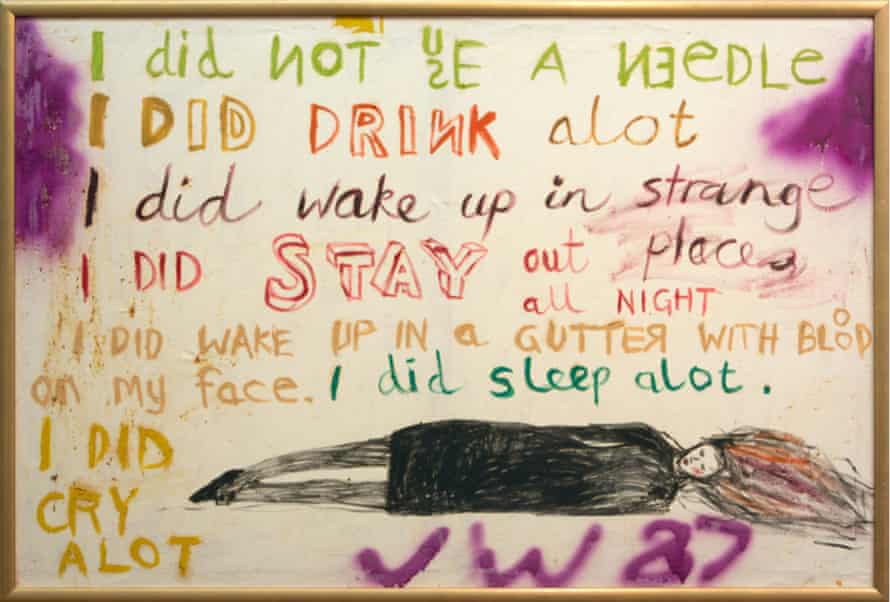 I did NOT USE A NEEDLE
I DID DRINK alot
I did wake up in strange
places
I DID STAY out
all NIGHT
I DID WAKE UP IN a GUTTER WITH BLOOD
on my face. I did sleep alot.
I DID
CRY
ALOT
VW 87